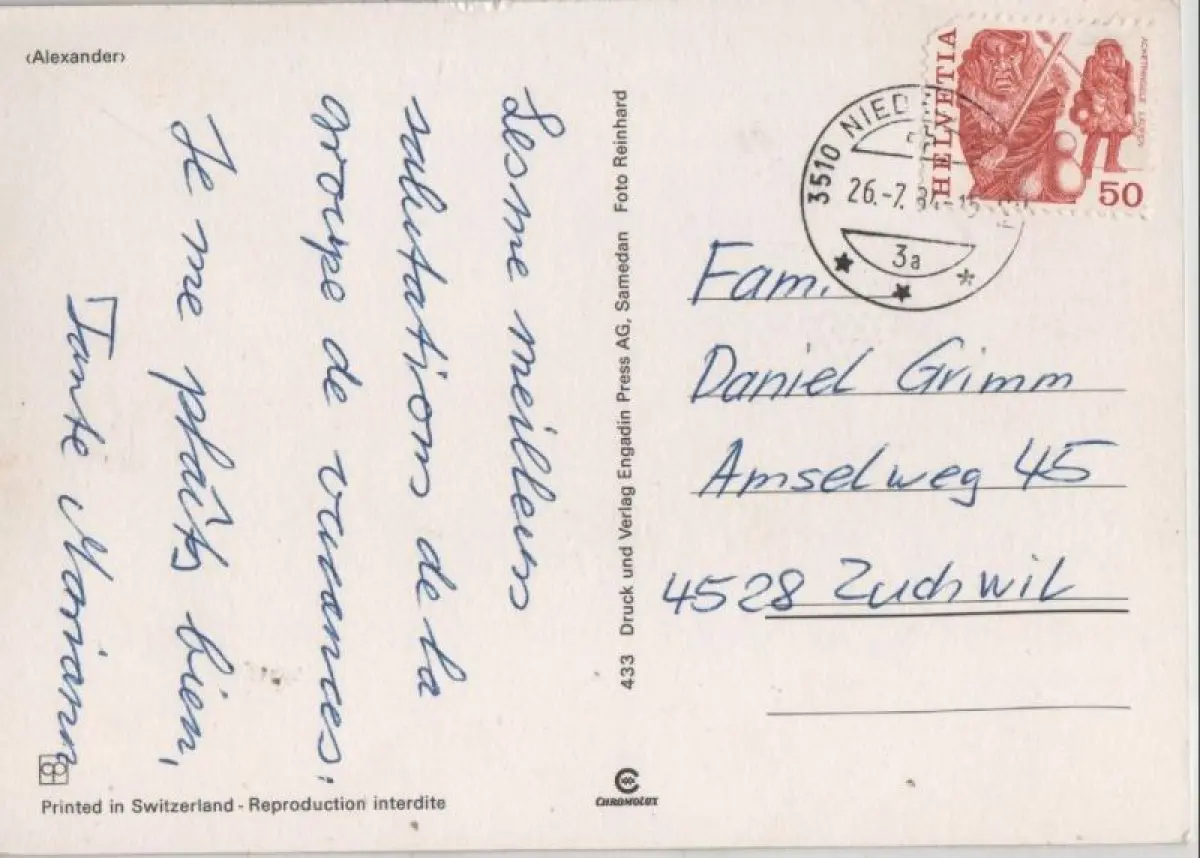 ‹Alexander›
Lesme meilleurs
salutations de la
groupe de vacances.
Je me plaîts bien,
Tante Mariann
Printed in Switzerland - Reproduction interdite
433 Druck und Verlag Engadin Press AG, Samedan Foto Reinhard
CHROMOLUX
HELVETIA
50
3510 NIED
26.-7.
3a
Fam.
Daniel Grimm
Amselweg 45
4528 Zuchwil